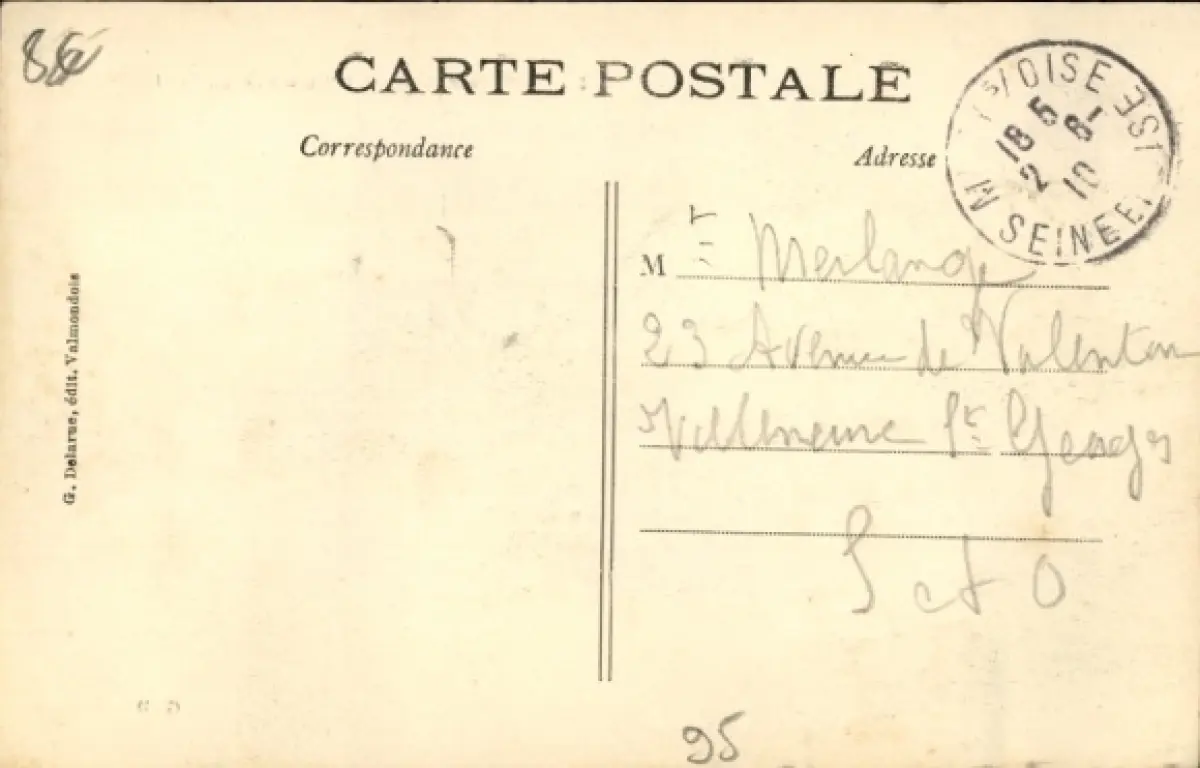 CARTE POSTALE
Correspondance
Adresse
18 5
2 8- 10
SEINE
M Merlange
23 Avenue de Valenton
Villeneuve St Georges
S et O
G. Delarue, édit. Valmondois
95